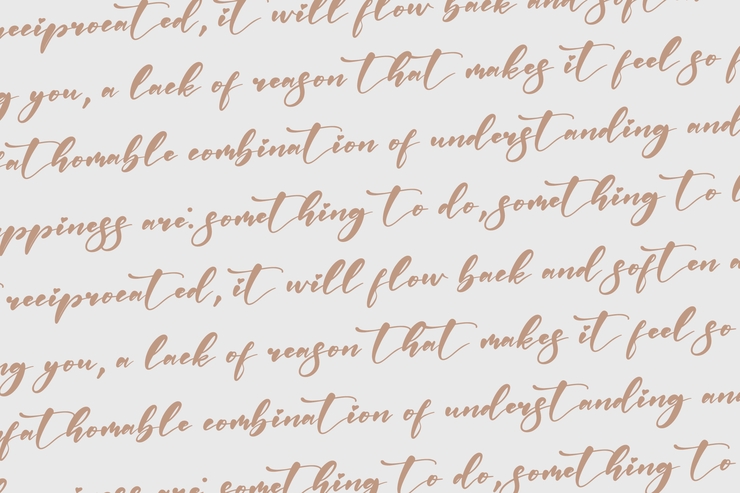 reciprocated, it will flow back and soften
g you, a lack of reason that makes it feel so f
fathomable combination of understanding and
ppiness are: something to do, something to l
reciprocated, it will flow back and soften a
ng you, a lack of reason that makes it feel so
nfathomable combination of understanding and
are: something to do, something to